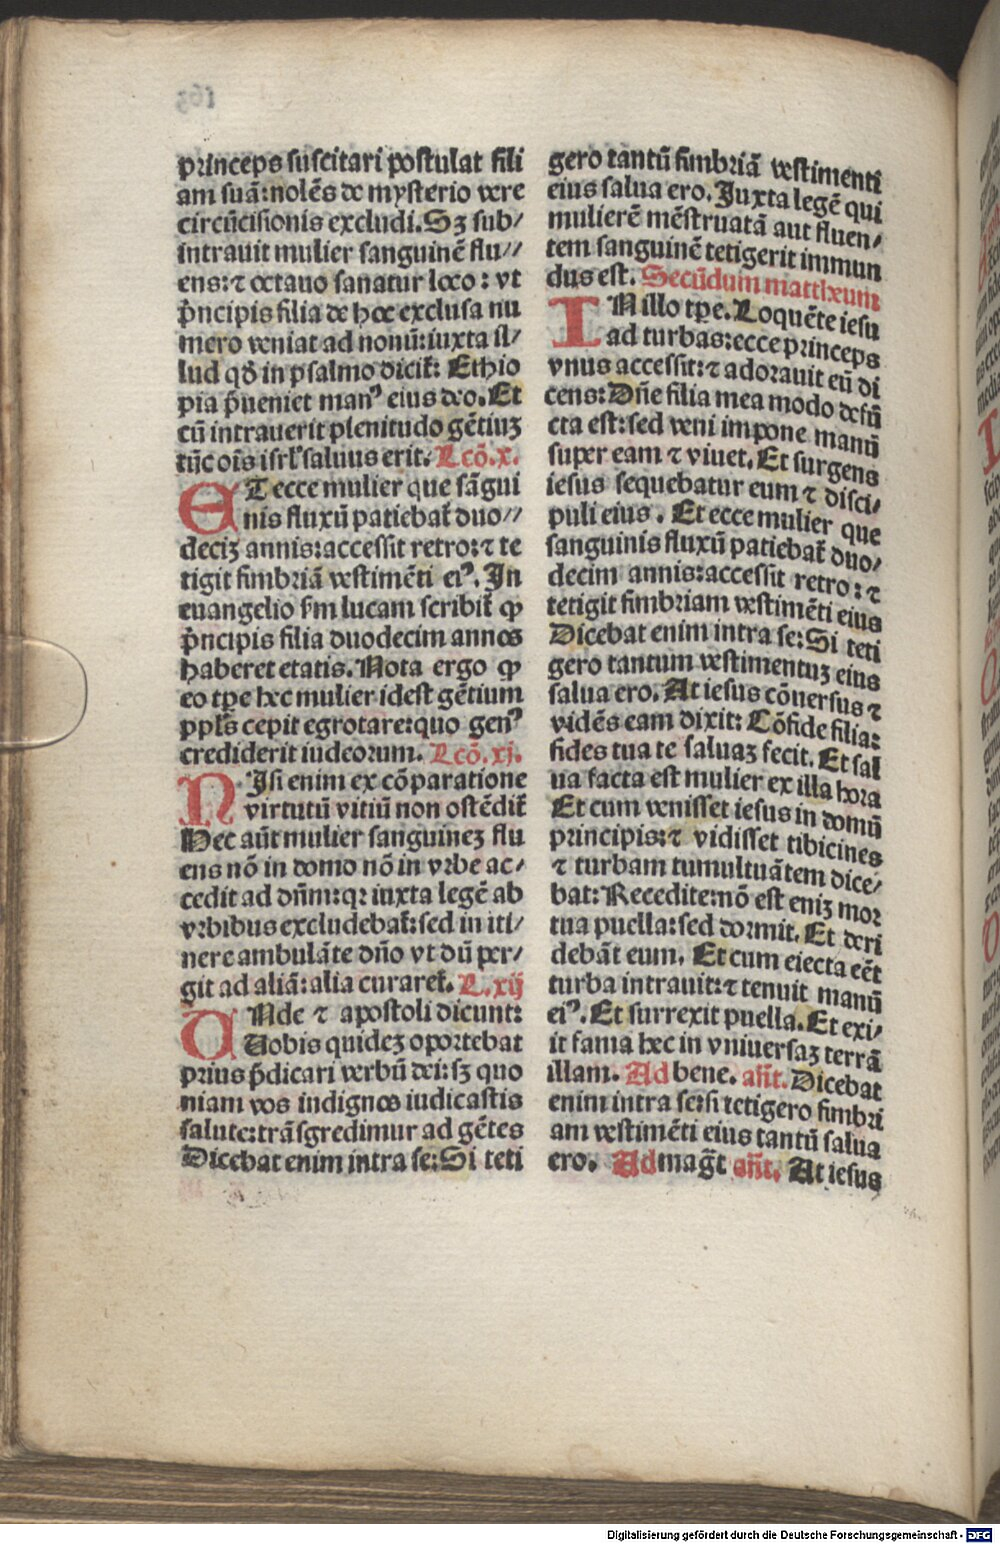 princeps suscitari postulat fili
am suā: nolēs de mysterio vere
circūcisionis excludi. Sꝫ sub/
intrauit mulier sanguinē flu//
ens: ⁊ octauo sanatur loco: vt
p̄ncipis filia de hoc exclusa nu
mero veniat ad nonū: iuxta il/
lud qđ in psalmo dicit̄: Ethio
pia p̄ueniet manꝰ eius deo. Et
cū intrauerit plenitudo gētiuꝫ
tūc oīs isrl̄ saluus erit. Lcō. x.
ET ecce mulier que sāgui
nis fluxū patiebat̄ duo//
deciꝫ annis: accessit retro: ⁊ te
tigit fimbriā vestimēti eiꝰ. In
euangelio ẜm lucam scribit̄ ꝙ
p̄ncipis filia duodecim annos
haberet etatis. Nota ergo ꝙ
eo tꝑe hec mulier idest gētium
ppl̄s cepit egrotare: quo genꝰ
crediderit iudeorum. Lcō. xj.
NIsi enim ex cōparatione
virtutū vitiū non ostēdit̄
Hec aūt mulier sanguineꝫ flu
ens nō in domo nō in vrbe ac/
cedit ad dn̄m: qꝛ iuxta legē ab
vrbibus excludebat̄: sed in iti/
nere ambulāte dn̄o vt dū per/
git ad aliā: alia curaret̄. L. xij
VNde ⁊ apostoli dicunt:
Uobis quideꝫ oportebat
prius p̄dicari verbū dei: sꝫ quo
niam vos indignos iudicastis
salute: trāsgredimur ad gētes
Dicebat enim intra se: Si teti
gero tantū fimbriā vestimenti
eius salua ero. Iuxta legē qui
mulierē mēstruatā aut fluen/
tem sanguinē tetigerit immun
dus est. Secūdum mattheum
IN illo tꝑe. Loquēte iesu
ad turbas: ecce princeps
vnus accessit: ⁊ adorauit eū di
cens: Dn̄e filia mea modo defū
cta est: sed veni impone manū
super eam ⁊ viuet. Et surgens
iesus sequebatur eum ⁊ disci/
puli eius. Et ecce mulier que
sanguinis fluxū patiebat̄ duo/
decim annis: accessit retro: ⁊
tetigit fimbriam vestimēti eius
Dicebat enim intra se: Si teti
gero tantum vestimentuꝫ eius
salua ero. At iesus cōuersus ⁊
vidēs eam dixit: Cōfide filia:
fides tua te saluaꝫ fecit. Et sal
ua facta est mulier ex illa hora
Et cum venisset iesus in domū
principis: ⁊ vidisset tibicines
⁊ turbam tumultuātem dice/
bat: Recedite: nō est eniꝫ mor
tua puella: sed dormit. Et deri
debāt eum. Et cum eiecta eēt
turba intrauit: ⁊ tenuit manū
eiꝰ. Et surrexit puella. Et exi/
it fama hec in vniuersaꝫ terrā
illam. Ad bene. an̄t. Dicebat
enim intra se: si tetigero fimbri
am vestimēti eius tantū salua
ero. Ad magt̄ an̄t. At iesus
Digitalisierung gefördert durch die Deutsche Forschungsgemeinschaft - DFG